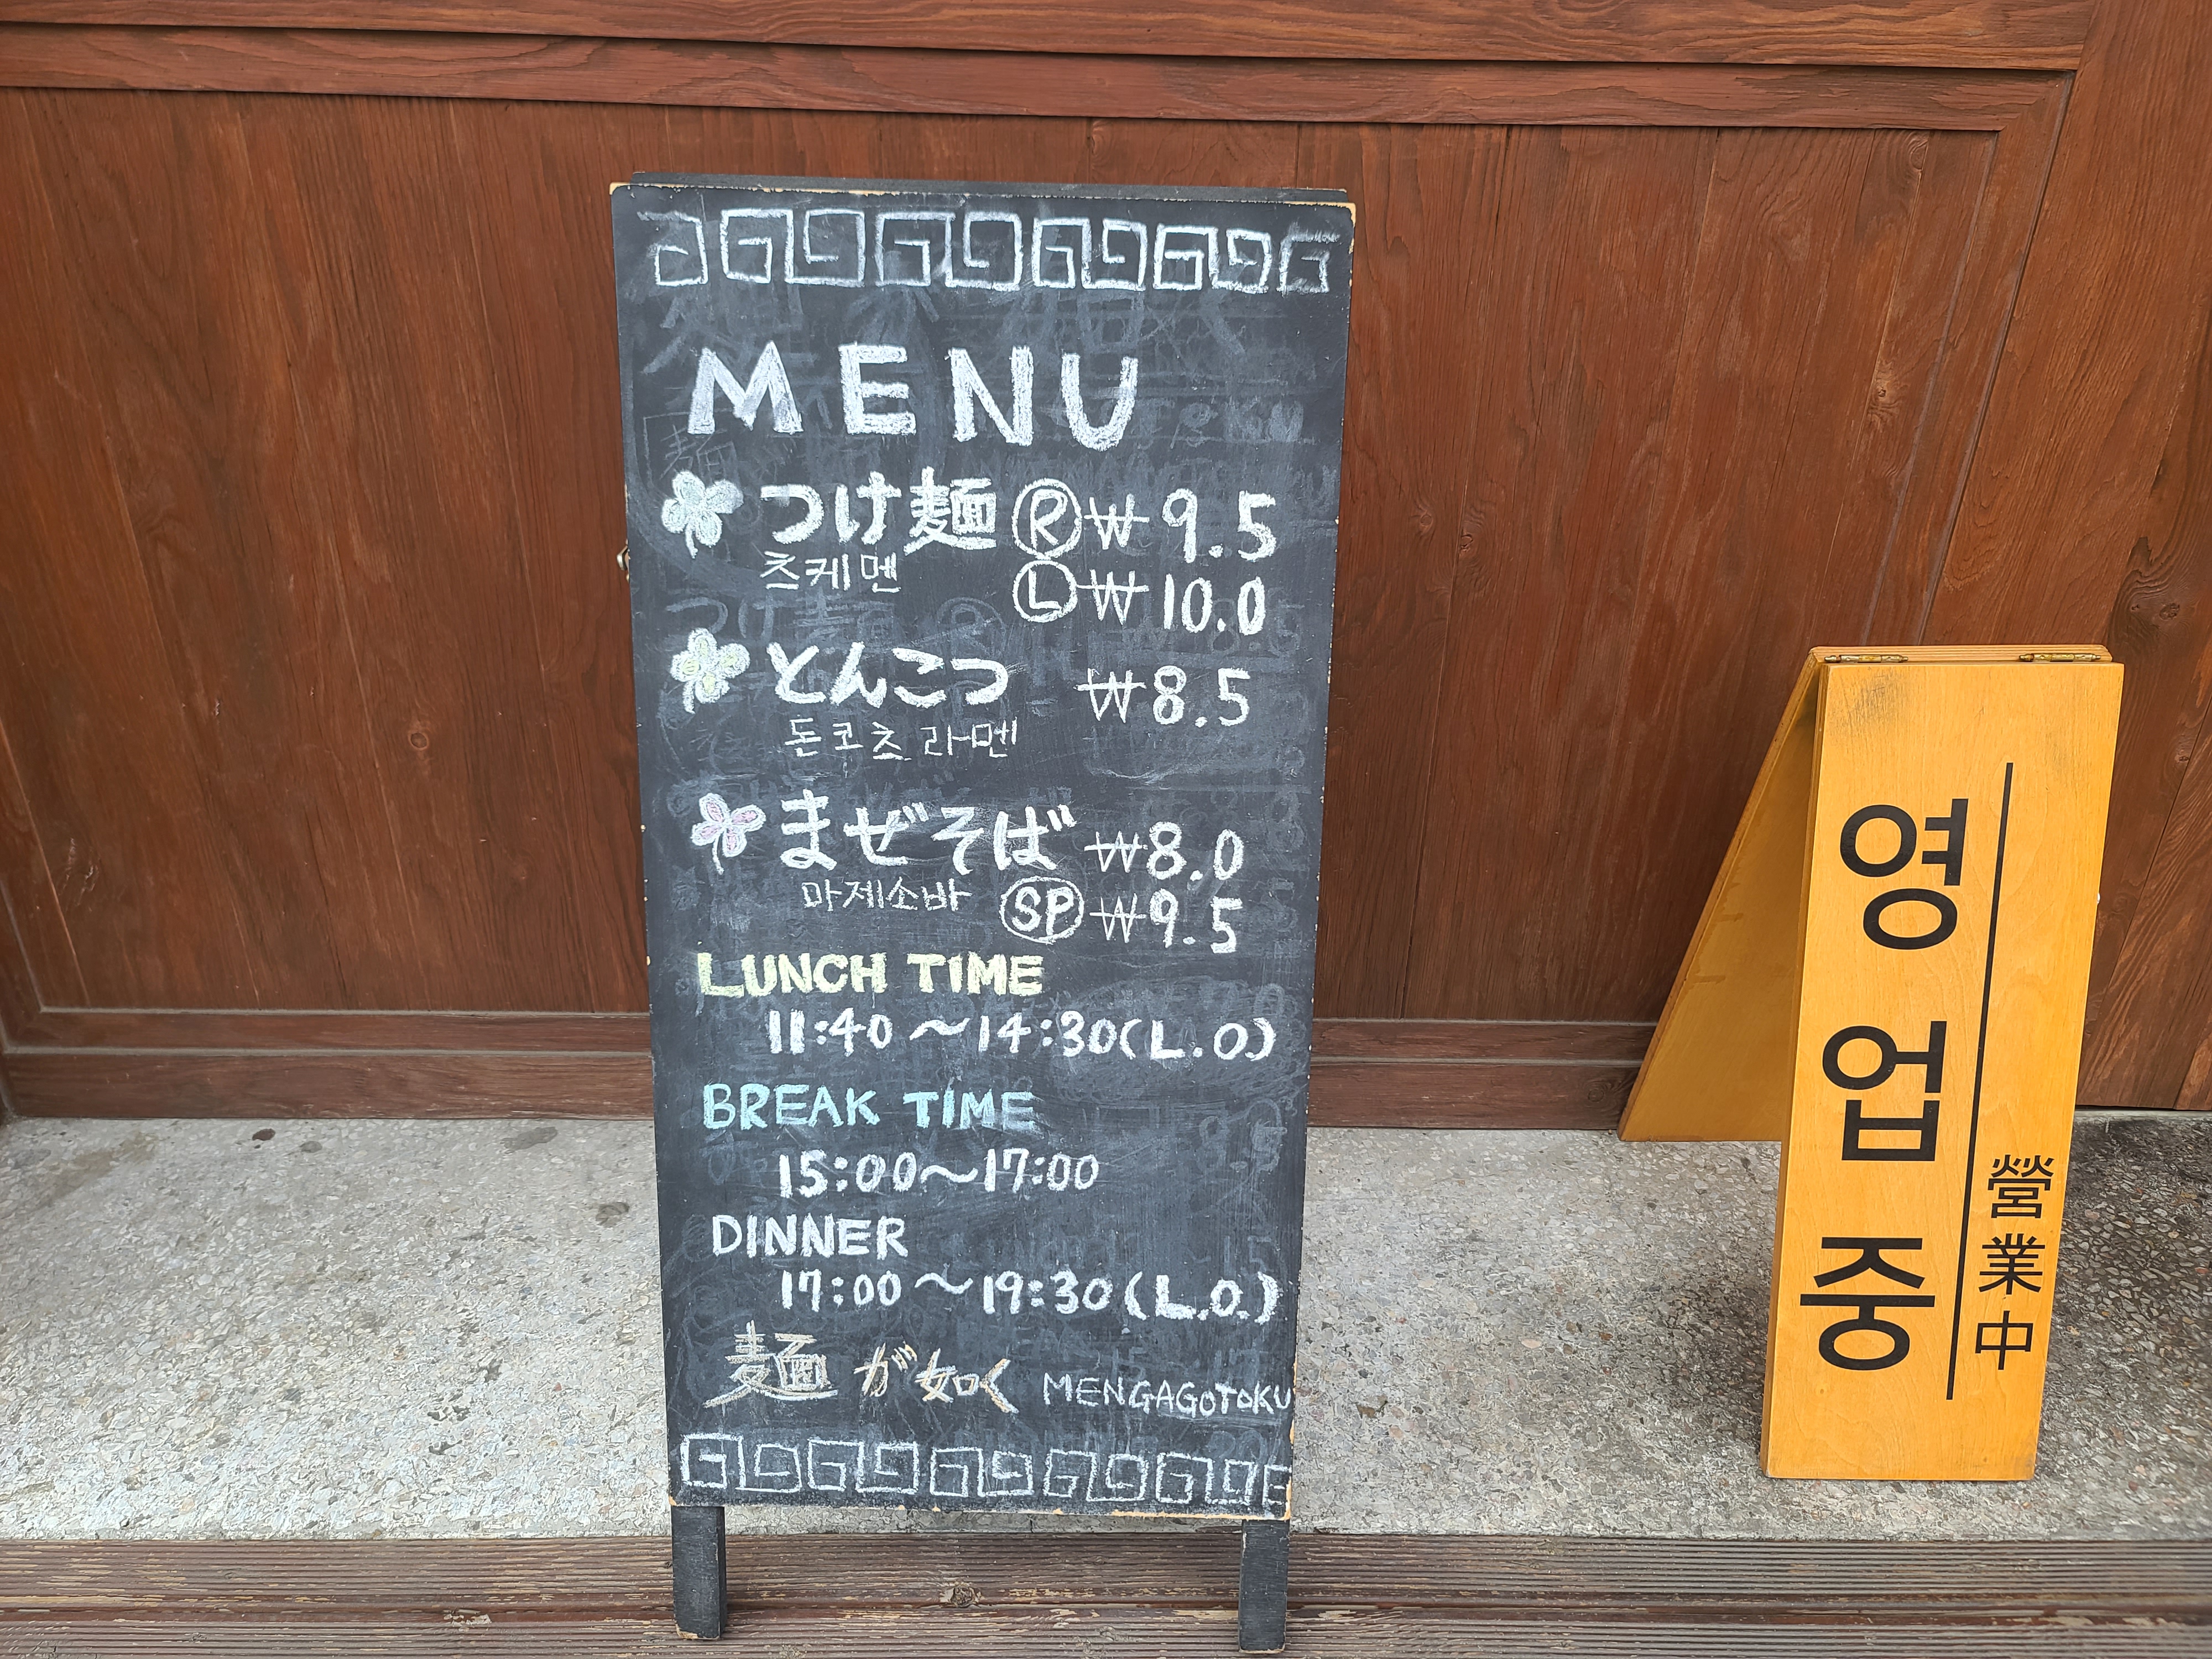 MENU
つけ麺 Ⓡ ₩9.5
츠케멘 Ⓛ ₩10.0
とんこつ ₩8.5
돈코츠 라멘
まぜそば ₩8.0
마제소바 SP ₩9.5
LUNCH TIME
11:40～14:30(L.O)
BREAK TIME
15:00～17:00
DINNER
17:00～19:30(L.O.)
麺が如く MENGAGOTOKU
영업중
營業中